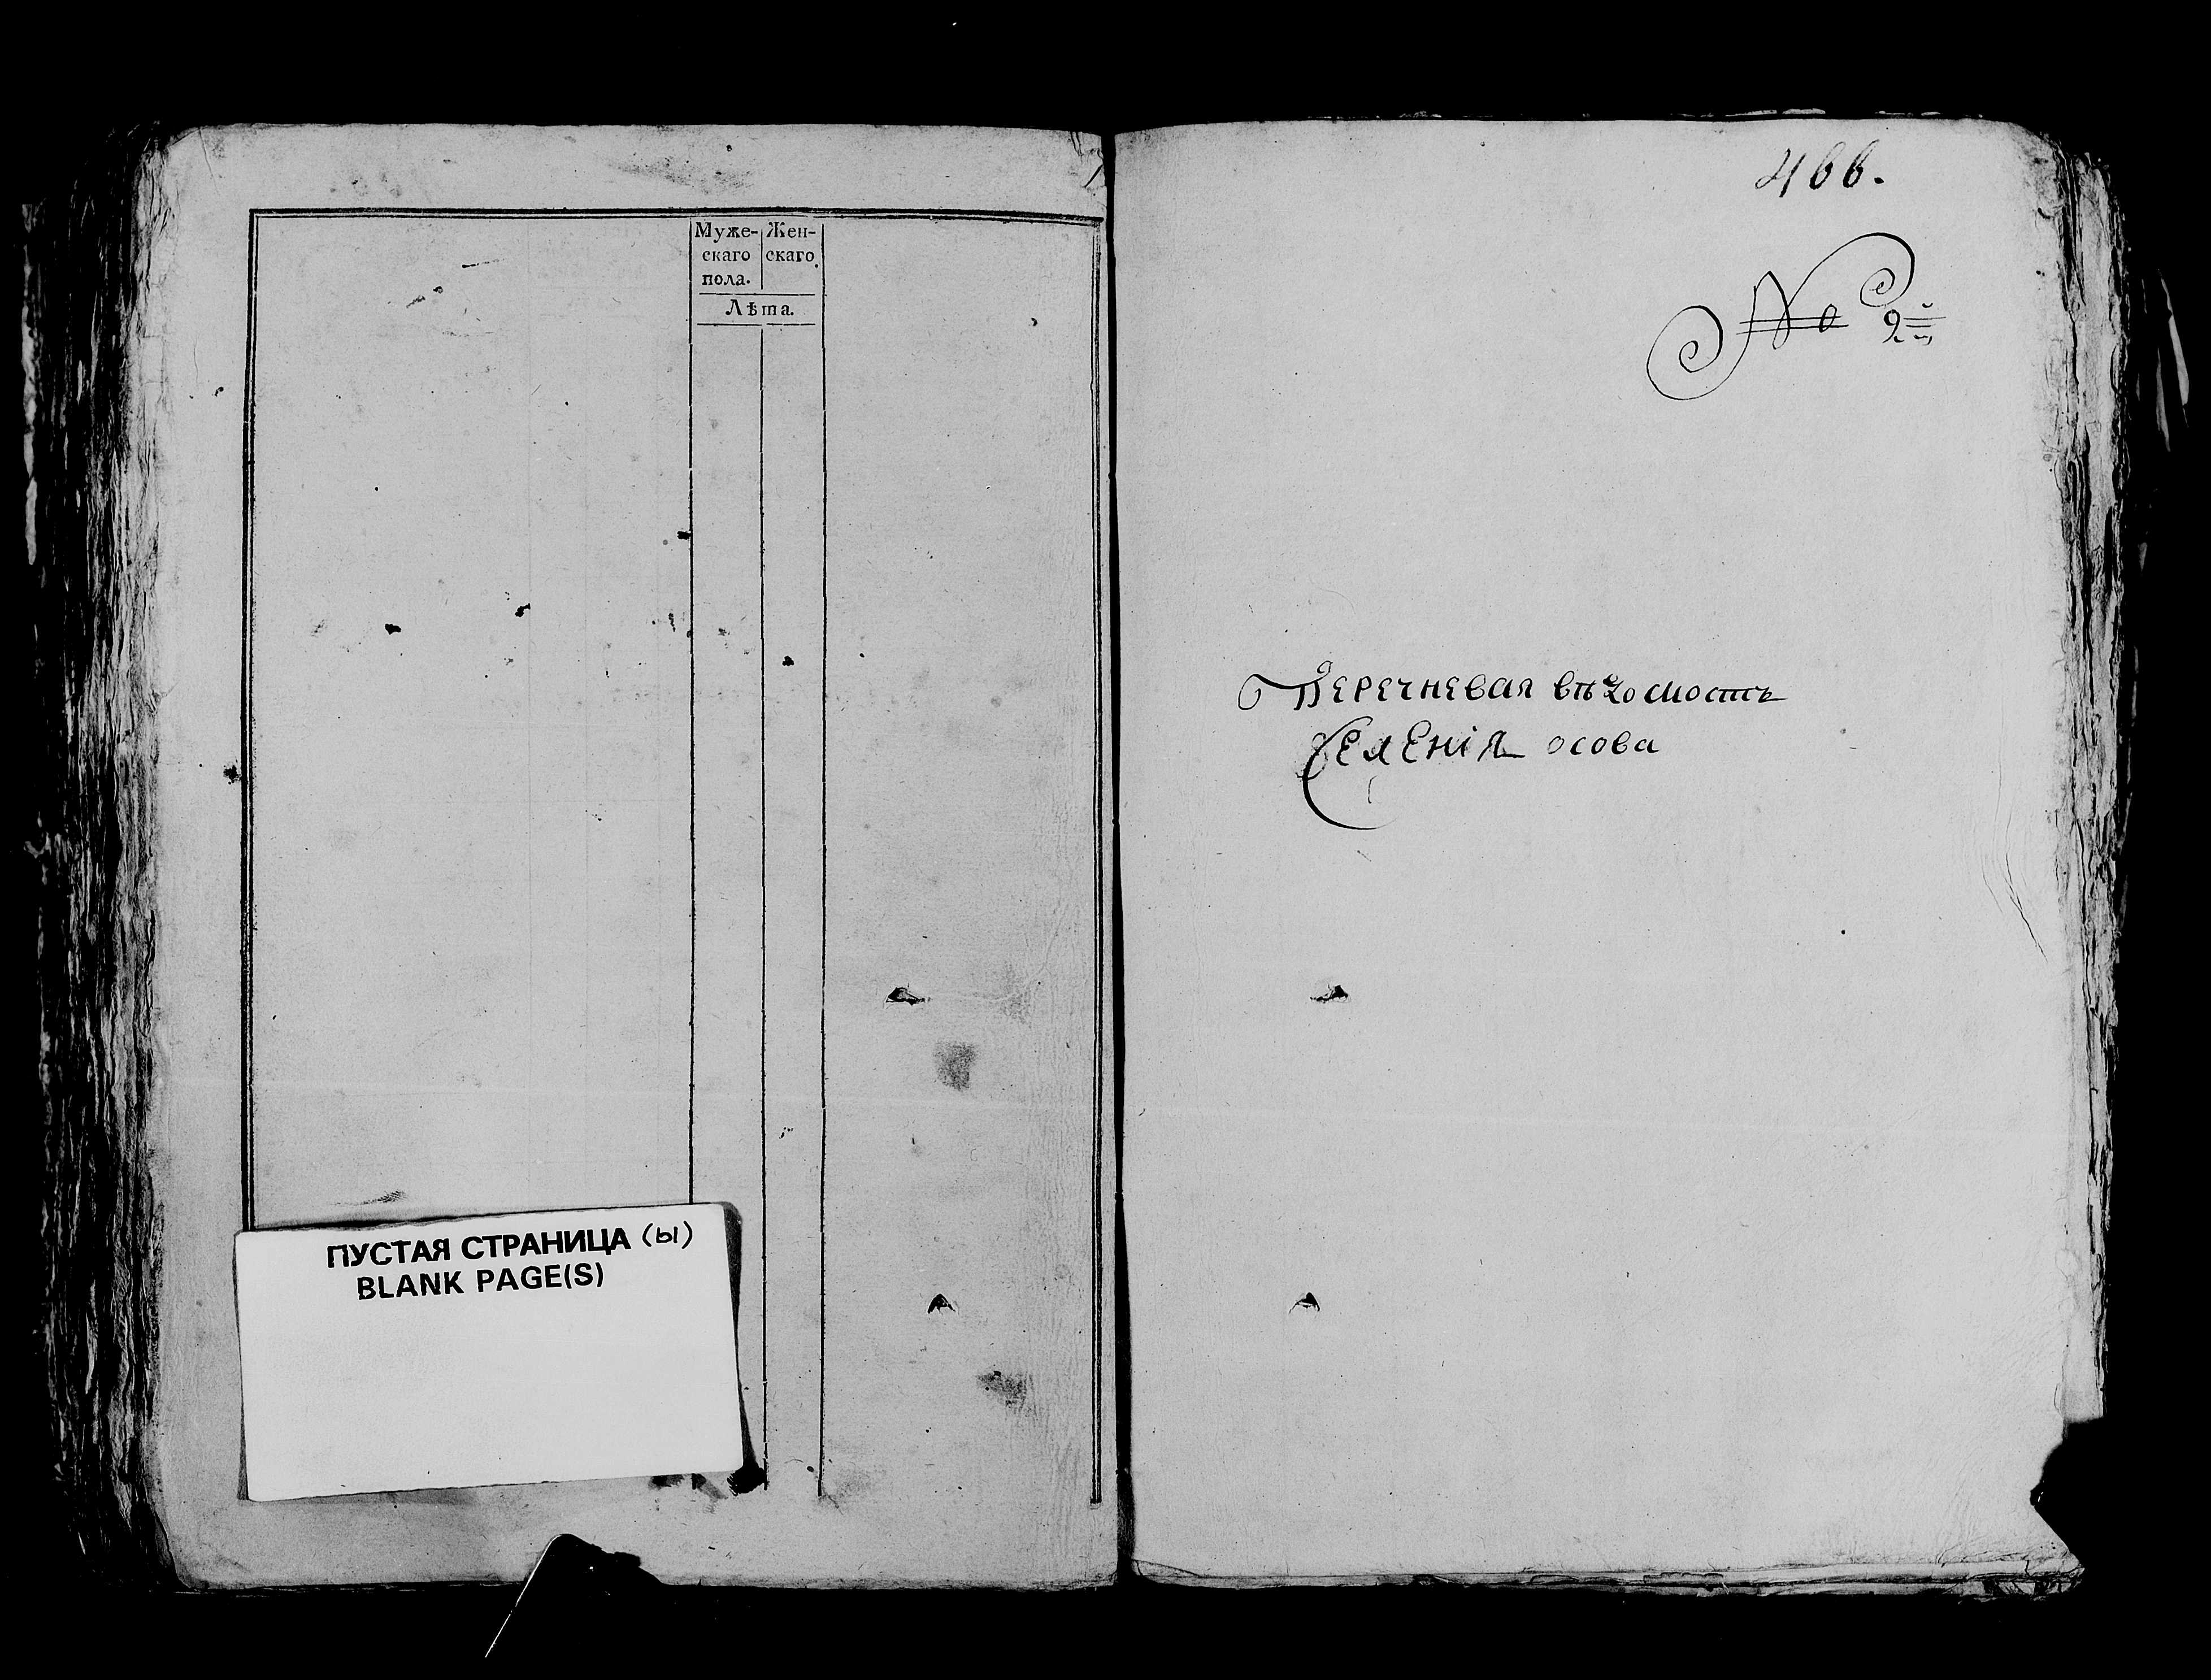 Муже-
скаго
пола.
Жен-
скаго
Лѣта.
ПУСТАЯ СТРАНИЦА (ы)
BLANK PAGE(S)
466.
No 2й
Перечневая вѣдомость
Селенія осова